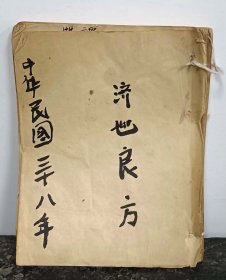 中华民國三十八年
済世良方